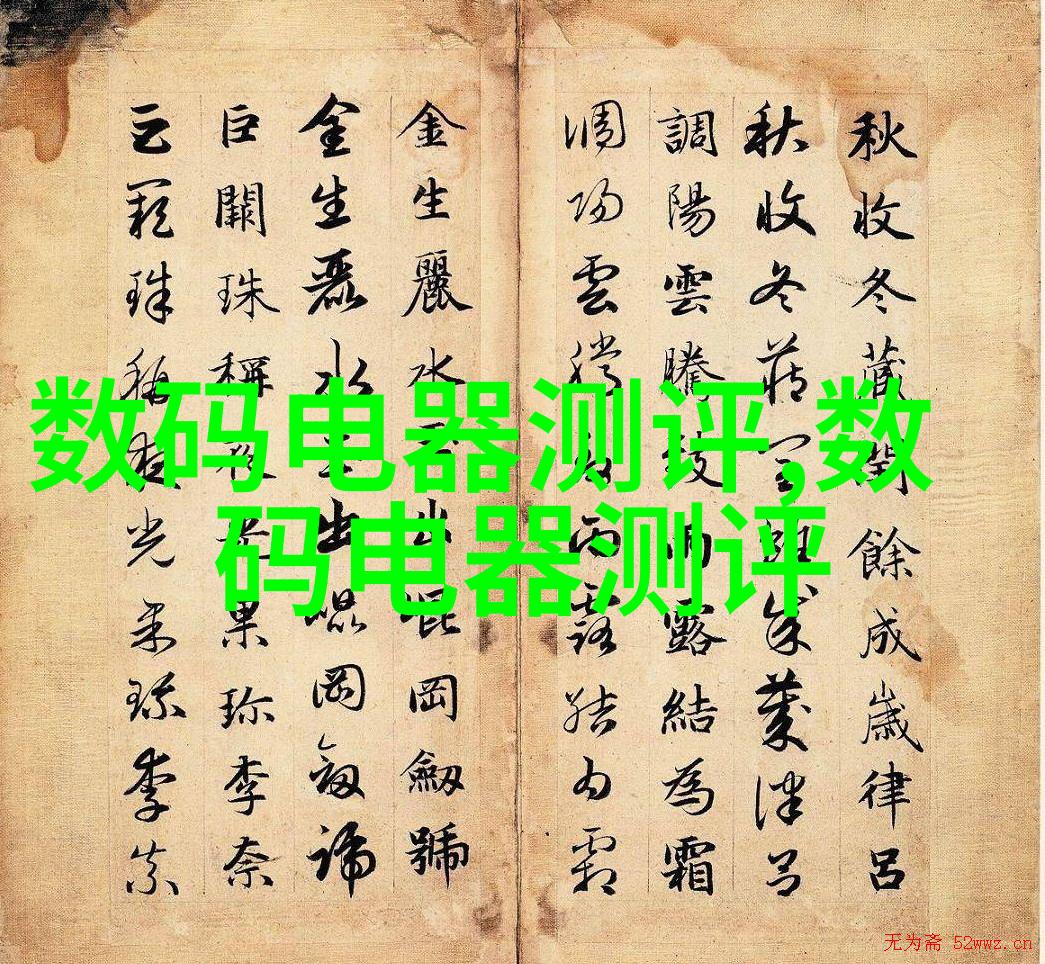 秋收冬藏閏餘成歲律呂
秋收冬藏閏餘成歲律呂
調陽雲騰致雨露結為霜
調陽雲騰致雨露結為霜
金生麗水玉出崐岡劒號
金生麗水玉出崐岡劒號
巨闕珠稱夜光果珎李柰
巨闕珠稱夜光果珎李柰
数码电器测评,数
码电器测评
无为斋 52wwz.cn